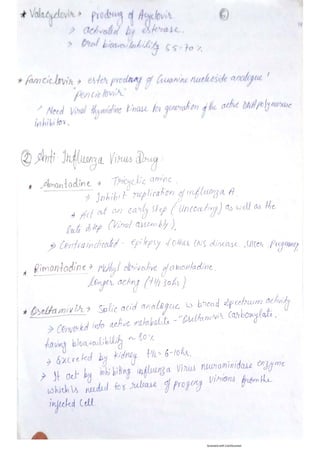 * Valacyclovir → prodrug of Acyclovir
→ activated by esterase.
→ Oral bioavailability 55-70%
* famciclovir → ester prodrug of Guanine nucleoside analogue
'Penciclovir'
→ Need Viral thymidine Kinase for generation of the active DNA polymerase
inhibitor.
② Anti Influenza Virus Drug:
* Amantadine → Tricyclic amine.
→ Inhibit replication of influenza A
→ Act at an early step (uncoating) as well as the
late step (Viral assembly),
→ Contraindicated - Epilepsy & other CNS disease, Pregnancy
* Rimantadine → Methyl derivative of amantadine.
longer acting (t½ 30hr)
* Oseltamivir → Salic acid analogue broad spectrum activity
→ Converted into active metabolite - "Oseltamivir Carboxylate.
having bioavailibility ~ 80%
→ Excreted by kidney t½- 6-10hr.
→ It act by inhibiting influenza virus neuraminidase enzyme
which is needed for release of progeny virions from the
infected cell.
Scanned with CamScanner